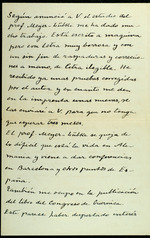 Según anuncié a V. el estudio del
prof. Meyer-Lübke me ha dado mu-
cho trabajo. Está escrito a maquina
pero con letra muy borrosa y con
un sin fin de raspaduras y correccio-
nes a mano, de letra ilegible. He
recibido ya unas pruebas corregidas
por el autor y en cuanto me den
en la imprenta unas nuevas, se
las enviaré a V. para que no tenga
que esperar tres meses.
El prof. Meyer-Lübke se queja de
lo dificil que está la vida en Ale-
mania y viene a dar conferencias
en Barcelona y otros puntos de Es-
paña.
También me ocupo en la publicación
del libro del Congreso de Guernica.
Este parece haber despertado interés